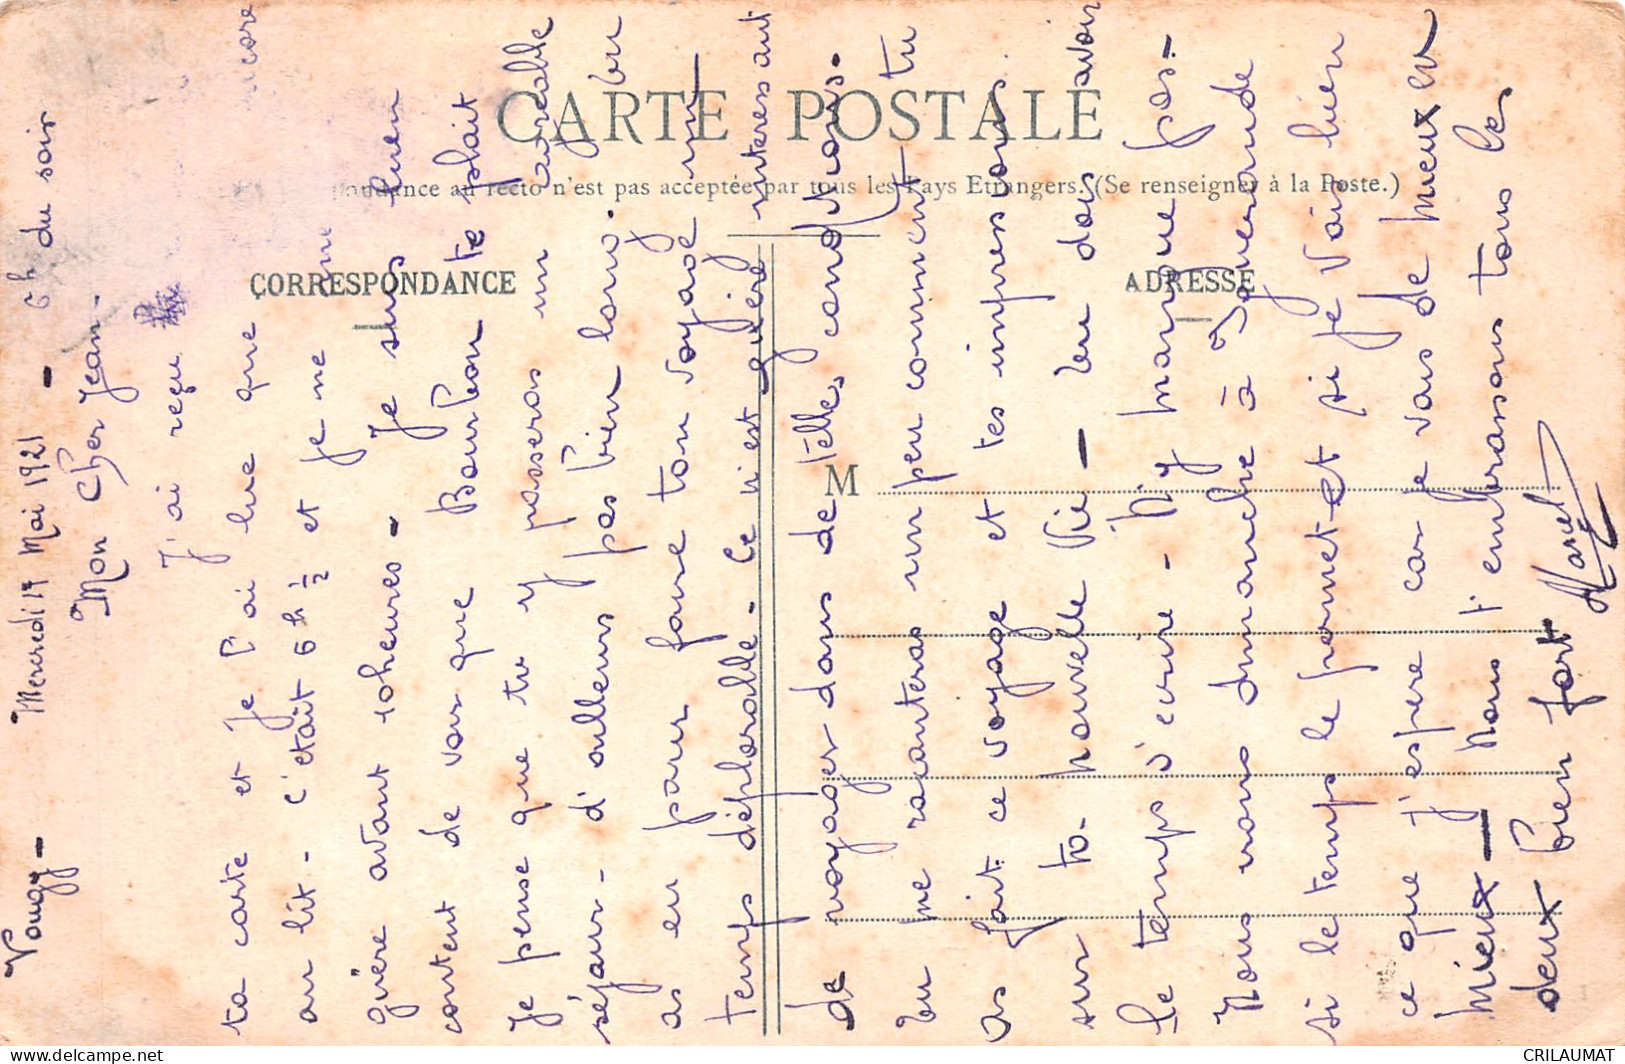 CARTE POSTALE
ndance au recto n'est pas acceptée par tous les Pays Etrangers. (Se renseigner à la Poste.)
CORRESPONDANCE
ADRESSE
M
Vougy - Mercredi 1 Mai 1921 - 6h du soir
Mon Cher Jean -
J'ai reçu
ta carte et je l'ai lue que encore
au lit - c'était 6h ½ et je ne me
guère avant 10heures - Je suis bien
content de voir que Bourbon te plait
Je pense que tu y passeras un agréable
séjour - d'ailleurs pas bien long. Tu
as eu pour faire ton voyage un
temps déplorable - Ce n'est guère intéressant
de voyager dans de telles conditions -
Tu me raconteras un peu comment tu
as fait ce voyage et tes impressions
sur ta nouvelle vie - Tu dois avoir
le temps d'écrire - N'y manque pas -
Nous irons dimanche à Iguerande
si le temps le permet et si je vais bien
ce que j'espère car je vais de mieux en
mieux - Nous t'embrassons tous les
deux bien fort Marcel
CRILAUMAT